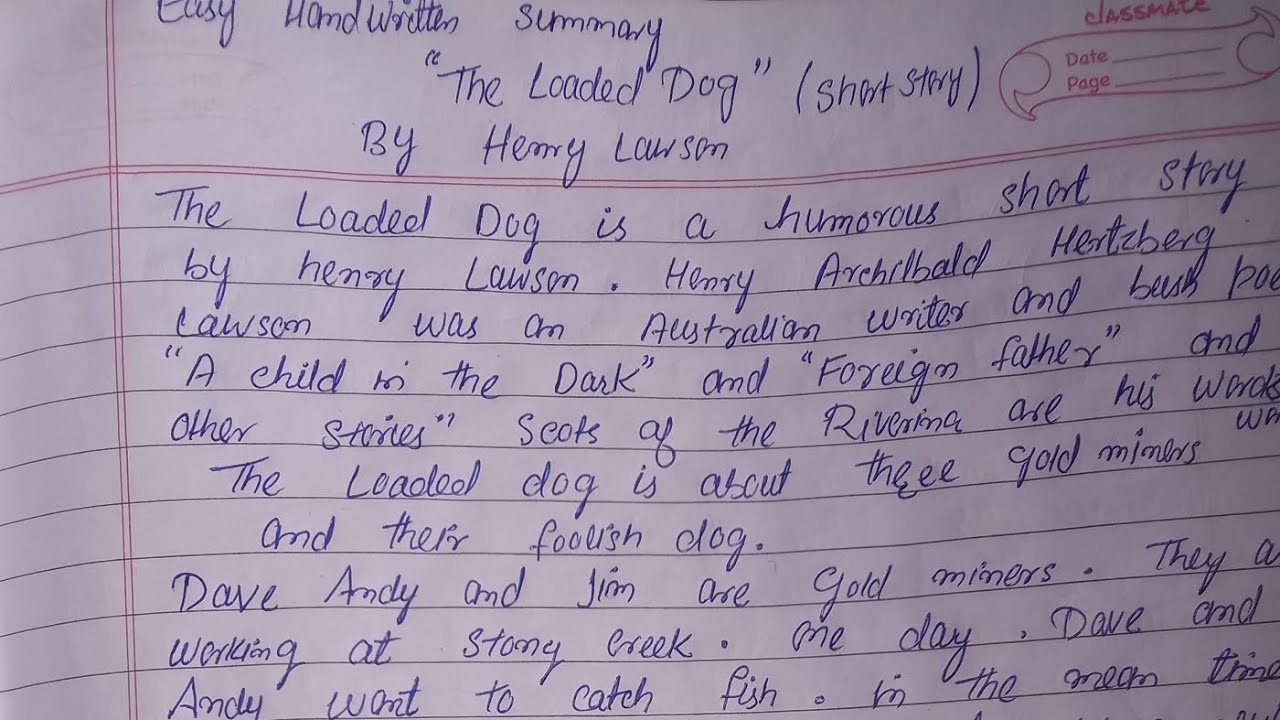 Easy Handwritten Summary
CLASSMATE
"The Loaded Dog" (short story)
Date
Page
By Henry Lawson
The Loaded Dog is a humorous short story
by henry Lawson. Henry Archilbald Hertzberg
Lawson was an Australian writer and bush poe
"A child in the Dark" and "Foreign father" and
other stories" Scots of the Riverina are his words
The Loaded dog is about three gold miners
and their foolish dog.
Dave Andy and Jim are Gold miners. They a
working at Stony Creek. One day. Dave and
Andy want to catch fish. in the mean time